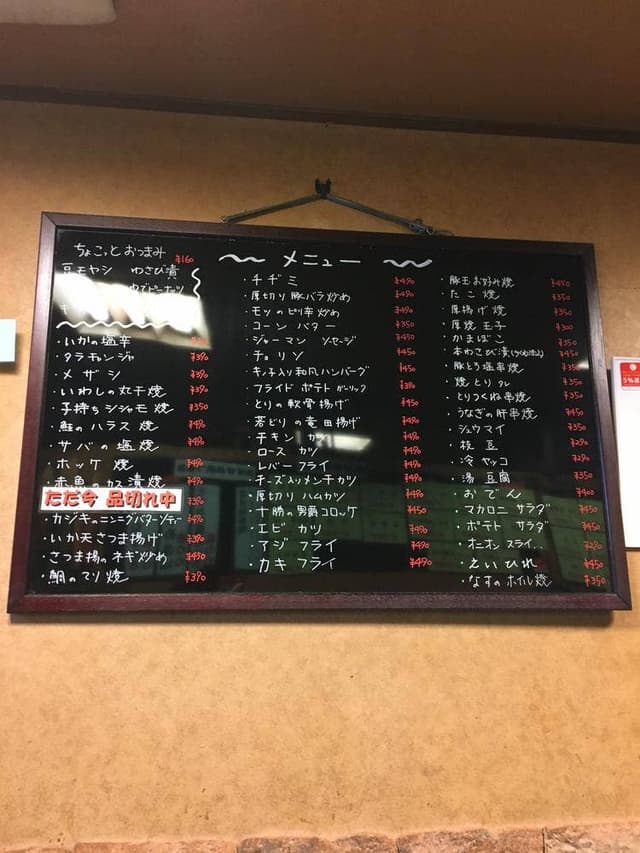 ちょこっとおつまみ ¥160
豆モヤシ わさび漬
ゆでピーナッツ
メニュー
・いかの塩辛
・タラチャンジャ ¥390
・メザシ ¥390
・いわしの丸干焼 ¥390
・子持ちシシャモ焼 ¥350
・鮭のハラス焼 ¥490
・サバの塩焼 ¥490
・ホッケ焼 ¥490
・赤魚のカス漬焼 ¥490
ただ今 品切れ中 ¥390
・カジキのニンニクバターソテー ¥490
・いか天さつま揚げ ¥390
・さつま揚のネギ炒め ¥450
・鯛のてり焼 ¥390
・チヂミ ¥490
・厚切り豚バラ炒め ¥490
・モツのピリ辛炒め ¥490
・コーンバター ¥350
・ジャーマンソーセージ ¥450
・チョリソ ¥450
・キノ子入り和風ハンバーグ ¥450
・フライドポテトガーリック ¥390
・とりの軟骨揚げ ¥450
・若どりの竜田揚げ ¥490
・チキンカツ ¥490
・ロースカツ ¥490
・レバーフライ ¥490
・チーズ入りメンチカツ ¥450
・厚切りハムカツ ¥490
・十勝の男爵コロッケ ¥450
・エビカツ ¥490
・アジフライ ¥490
・カキフライ ¥490
・豚玉お好み焼 ¥450
・たこ焼 ¥350
・厚揚げ焼 ¥350
・厚焼玉子 ¥300
・かまぼこ ¥350
・本わさび漬 ¥450
・豚とろ塩串焼 ¥350
・焼とり タレ ¥350
・とりつくね串焼 ¥350
・うなぎの肝串焼 ¥450
・シュウマイ ¥350
・枝豆 ¥290
・冷ヤッコ ¥290
・湯豆腐 ¥350
・おでん ¥400
・マカロニサラダ ¥450
・ポテトサラダ ¥450
・オニオンスライス ¥290
・えいひれ ¥450
・なすのホイル焼 ¥350